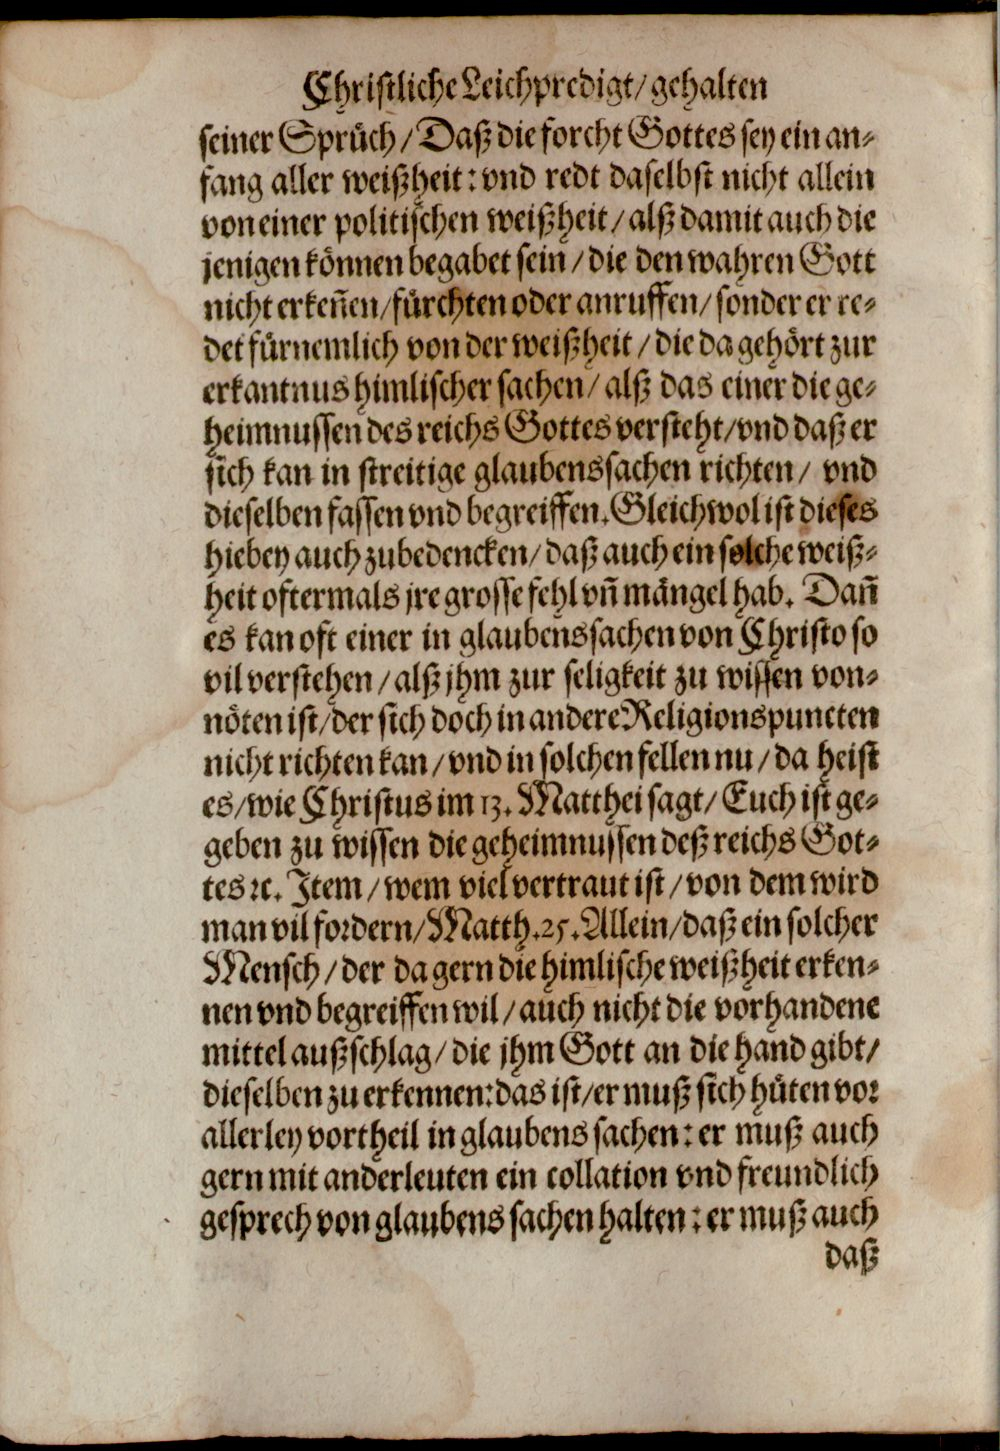 Christliche Leichpredigt/ gehalten
seiner Sprüch/ Daß die forcht Gottes sey ein an-
fang aller weißheit: vnd redt daselbst nicht allein
von einer politischen weißheit/ alß damit auch die
jenigen können begabet sein/ die den wahren Gott
nicht erkeñen/ fürchten oder anruffen/ sonder er re-
det fürnemlich von der weißheit/ die da gehört zur
erkantnus himlischer sachen/ alß das einer die ge-
heimnussen des reichs Gottes versteht/ vnd daß er
sich kan in streitige glaubenssachen richten/ vnd
dieselben fassen vnd begreiffen. Gleichwol ist dieses
hiebey auch zubedencken/ daß auch ein solche weiß-
heit oftermals jre grosse fehl vñ mängel hab. Dañ
es kan oft einer in glaubenssachen von Christo so
vil verstehen/ alß jhm zur seligkeit zu wissen von-
nöten ist/ der sich doch in andere Religionspuncten
nicht richten kan/ vnd in solchen fellen nu/ da heist
es/ wie Christus im 13. Matthei sagt/ Euch ist ge-
geben zu wissen die geheimnussen deß reichs Got-
tes ꝛc. Item/ wem viel vertraut ist/ von dem wird
man vil fordern/ Matth. 25. Allein/ daß ein solcher
Mensch/ der da gern die himlische weißheit erken-
nen vnd begreiffen wil/ auch nicht die vorhandene
mittel außschlag/ die jhm Gott an die hand gibt/
dieselben zu erkennen: das ist/ er muß sich hüten vor
allerley vortheil in glaubens sachen: er muß auch
gern mit anderleuten ein collation vnd freundlich
gesprech von glaubens sachen halten: er muß auch
daß